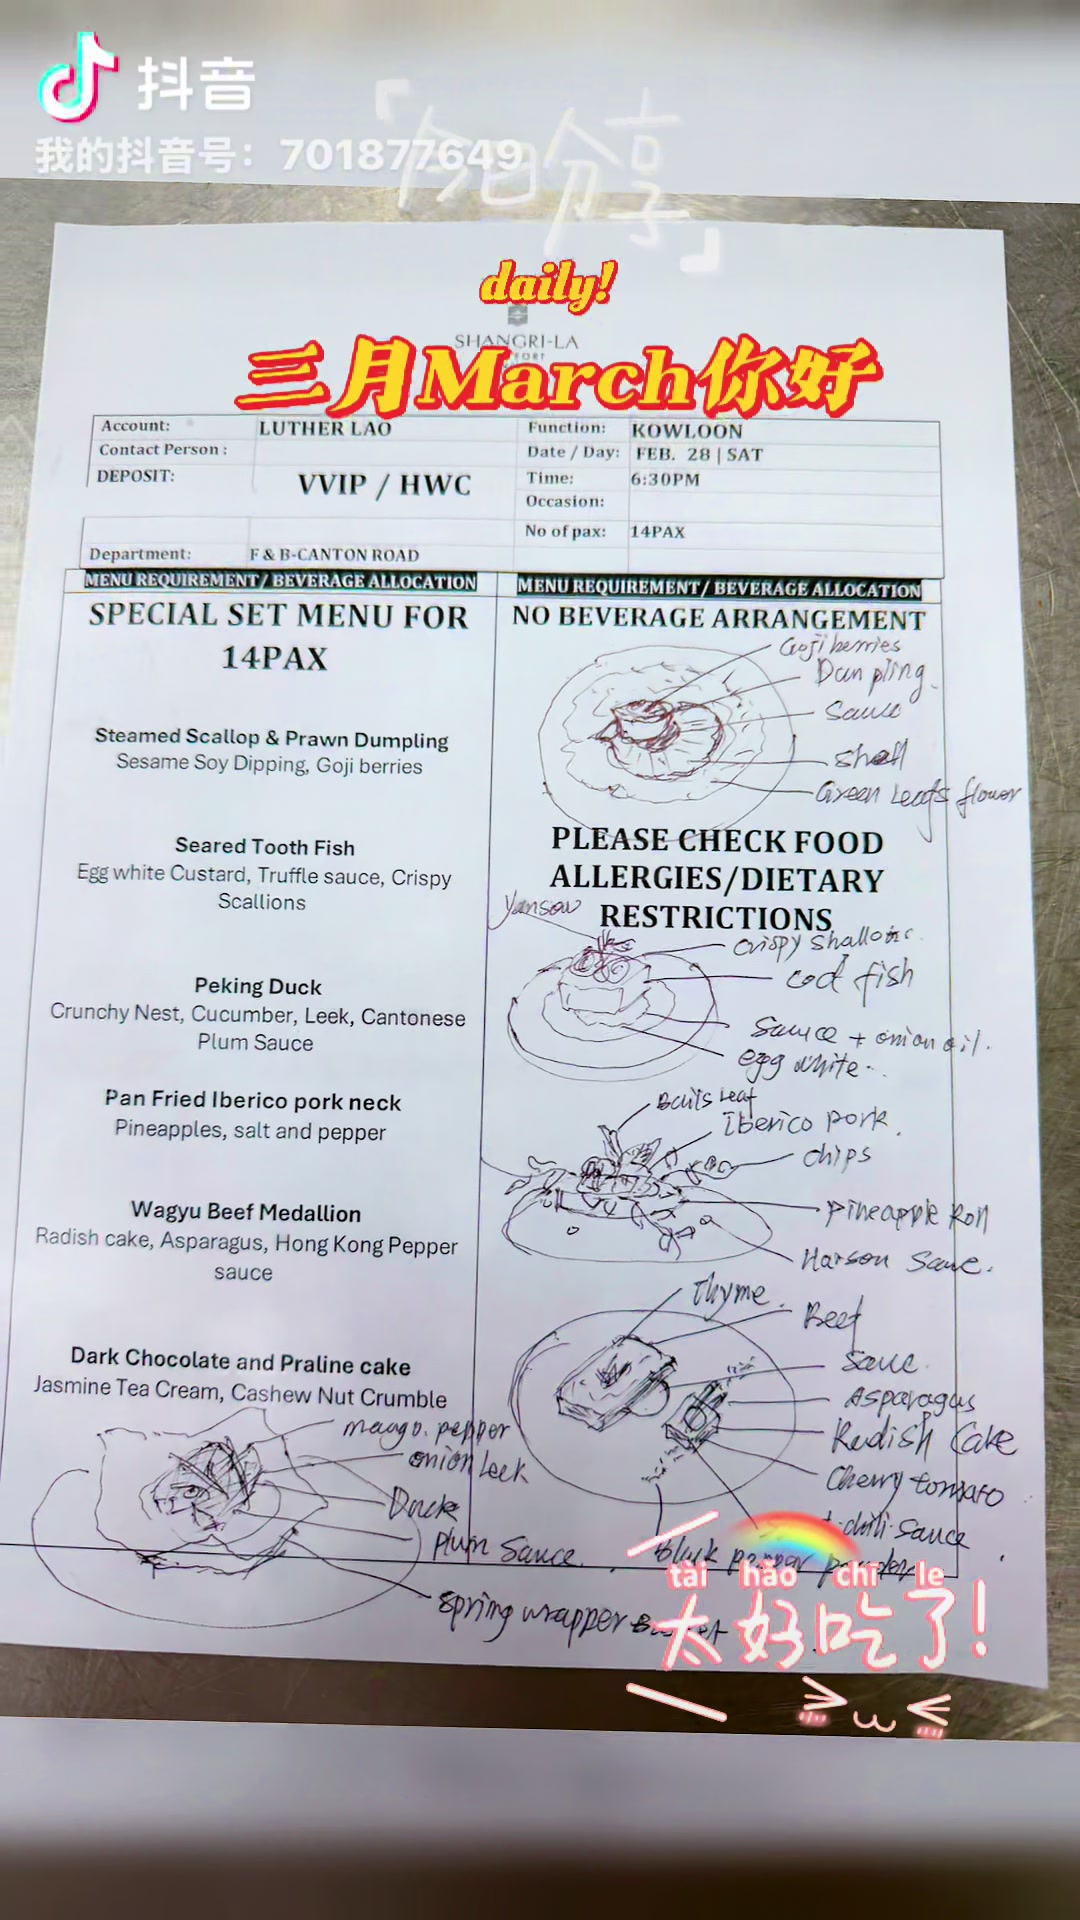 抖音
我的抖音号：701877649
「今日分享」
daily!
SHANGRI-LA
三月March你好
Account: LUTHER LAO Function: KOWLOON
Contact Person : Date / Day: FEB. 28 | SAT
DEPOSIT: VVIP / HWC Time: 6:30PM
Occasion:
No of pax: 14PAX
Department: F & B-CANTON ROAD
MENU REQUIREMENT/ BEVERAGE ALLOCATION MENU REQUIREMENT/ BEVERAGE ALLOCATION
SPECIAL SET MENU FOR
14PAX
Steamed Scallop & Prawn Dumpling
Sesame Soy Dipping, Goji berries
Seared Tooth Fish
Egg white Custard, Truffle sauce, Crispy
Scallions
Peking Duck
Crunchy Nest, Cucumber, Leek, Cantonese
Plum Sauce
Pan Fried Iberico pork neck
Pineapples, salt and pepper
Wagyu Beef Medallion
Radish cake, Asparagus, Hong Kong Pepper
sauce
Dark Chocolate and Praline cake
Jasmine Tea Cream, Cashew Nut Crumble
mango. pepper
onion leek
Duck
Plum Sauce.
Spring wrapper
NO BEVERAGE ARRANGEMENT
Goji berries
Dun pling.
Sauce
Shell
Green Leafs flower
PLEASE CHECK FOOD
ALLERGIES/DIETARY
RESTRICTIONS
Yansow
crispy shallots
cod fish
Sauce + onion oil.
egg white.
Leaf
Iberico pork.
chips
Pineapple Roll
Sauce.
Thyme.
Beef
Sauce.
Asparagus
Radish Cake
Cherry tomato
chili sauce
black pepper powder
tài hǎo chī le
太好吃了!